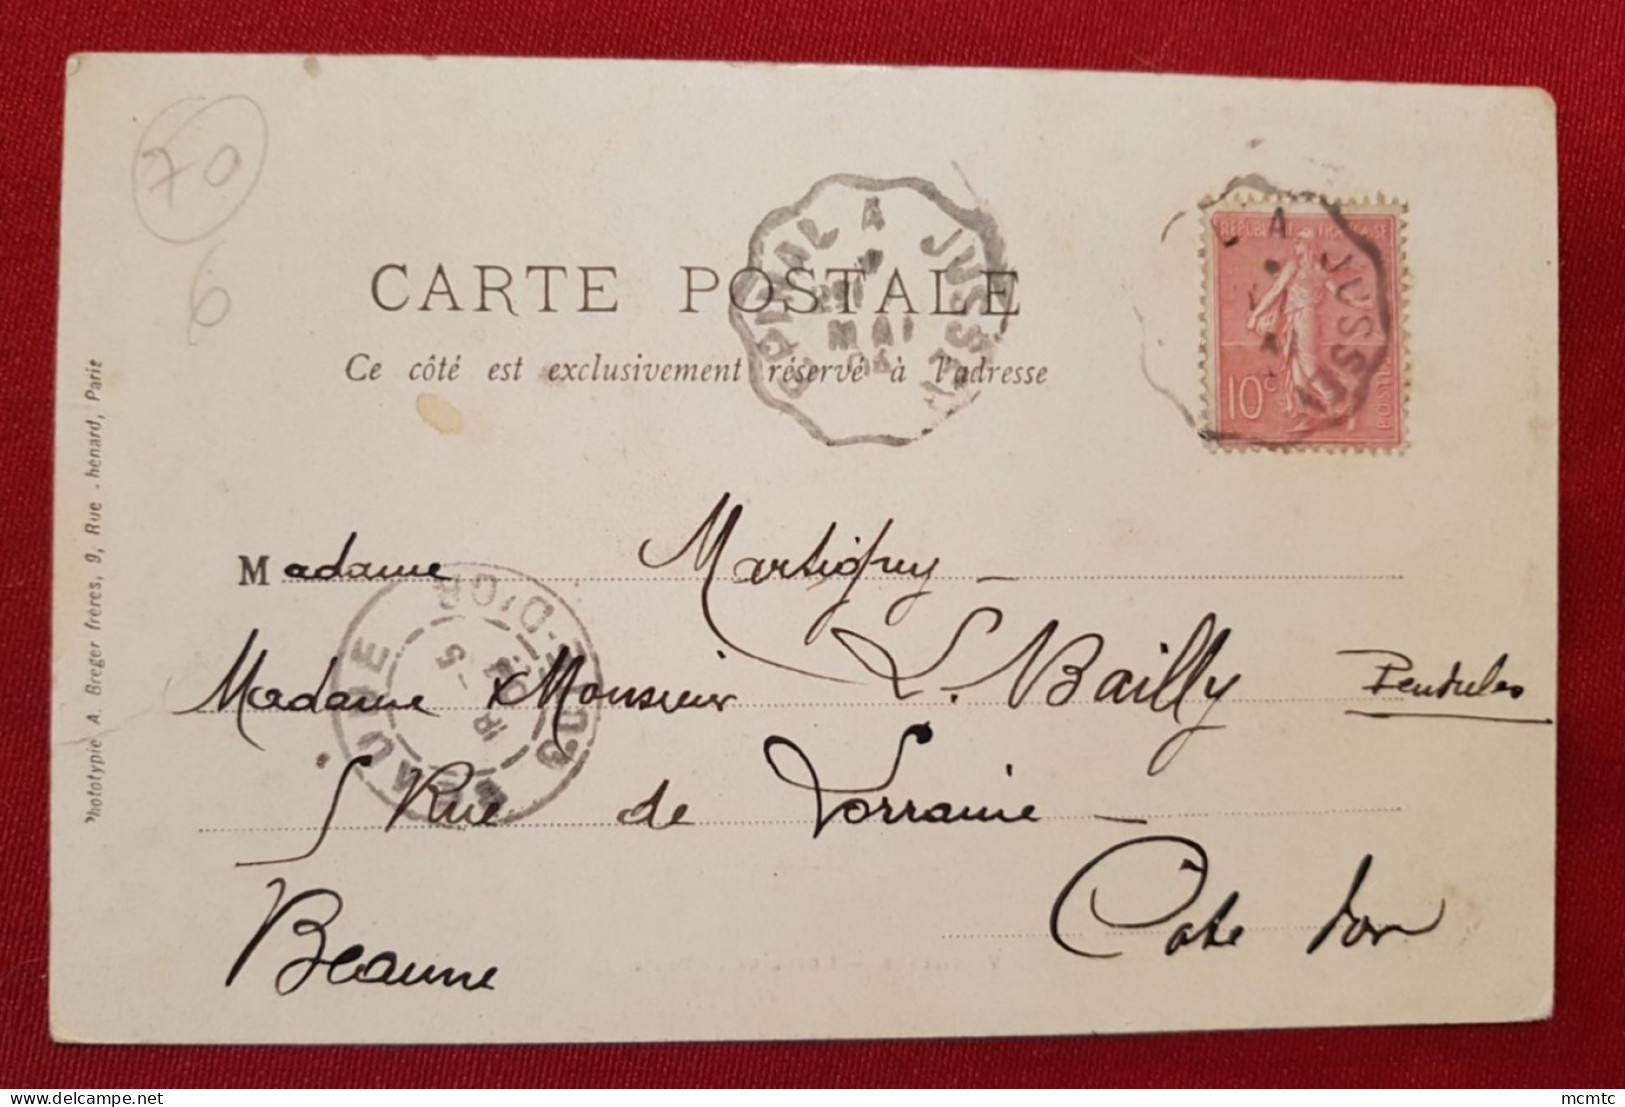 70
6
CARTE POSTALE
Ce côté est exclusivement réservé à l'adresse
EPINAL A JUSSEY
MAI
RÉPUBLIQUE FRANÇAISE
10c
POSTES
A JUSSEY
Phototypie A. Breger frères, 9, Rue Thénard, Paris
Madame Martigny
Madame & Monsieur L. Bailly Pendules
5 Rue de Lorraine
Beaune Côte d'or
BEAUNE COTE-D'OR
5